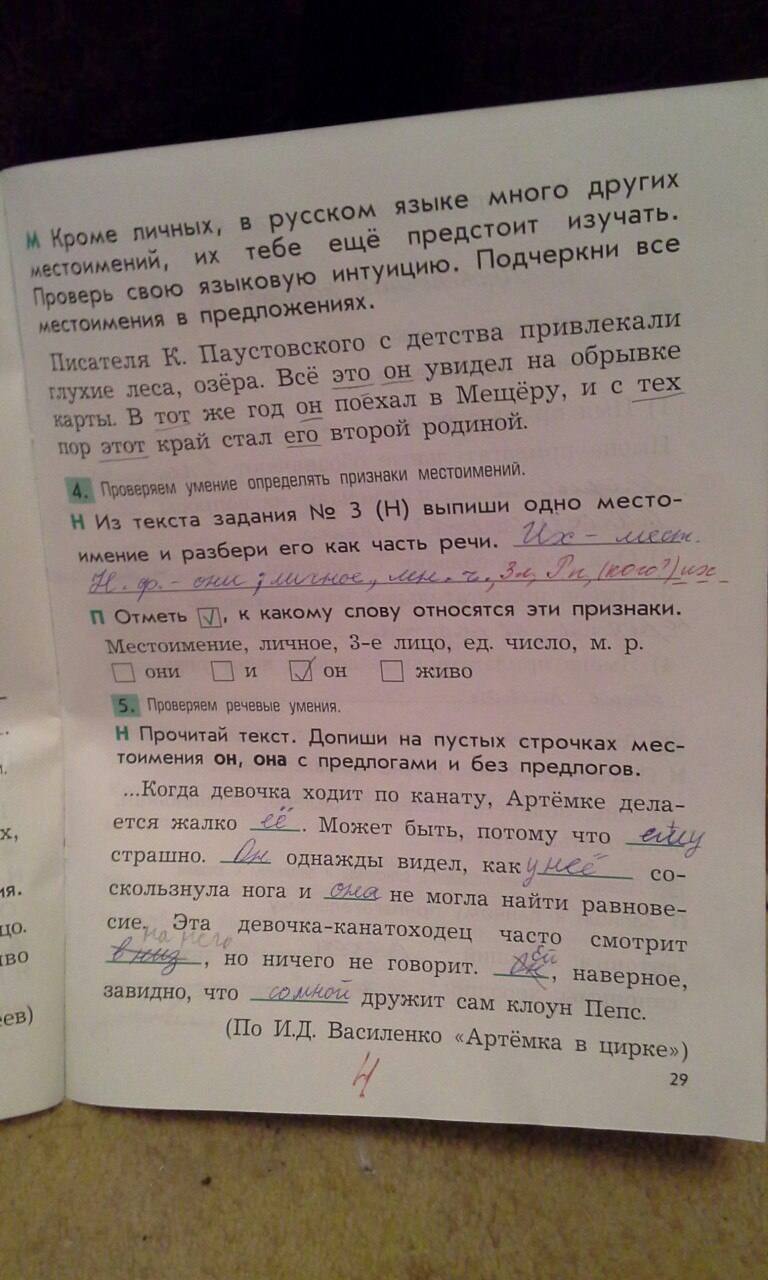 М Кроме личных, в русском языке много других
местоимений, их тебе ещё предстоит изучать.
Проверь свою языковую интуицию. Подчеркни все
местоимения в предложениях.
Писателя К. Паустовского с детства привлекали
глухие леса, озёра. Всё это он увидел на обрывке
карты. В тот же год он поехал в Мещёру, и с тех
пор этот край стал его второй родиной.
4. Проверяем умение определять признаки местоимений.
Н Из текста задания № 3 (Н) выпиши одно место-
имение и разбери его как часть речи. Их – мест.
Н. ф. – они ; личное, мн. ч., 3л, Рп, (кого?) их
П Отметь √, к какому слову относятся эти признаки.
Местоимение, личное, 3-е лицо, ед. число, м. р.
они и он живо
5. Проверяем речевые умения.
Н Прочитай текст. Допиши на пустых строчках мес-
тоимения он, она с предлогами и без предлогов.
...Когда девочка ходит по канату, Артёмке дела-
ется жалко её. Может быть, потому что ему
страшно. Он однажды видел, как у неё со-
скользнула нога и она не могла найти равнове-
сие. Эта девочка-канатоходец часто смотрит
на него
вниз, но ничего не говорит. Ей, наверное,
завидно, что сомной дружит сам клоун Пепс.
(По И.Д. Василенко «Артёмка в цирке»)
4
29
х,
ия.
цо.
иво
еев)